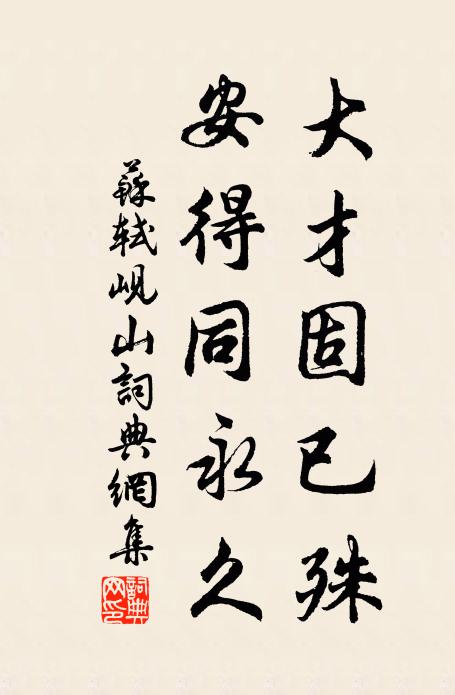 大才固已殊
安得同永久
蘇軾峴山詞典網集
詞典网印